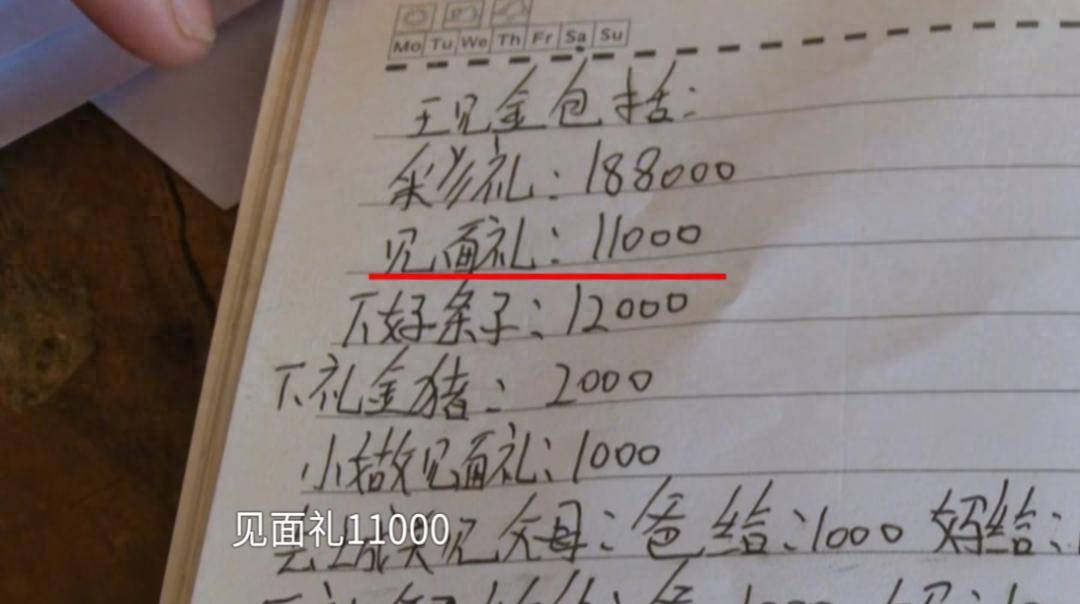 Mo Tu We Th Fr Sa Su
现金包括:
彩礼:188000
见面礼:11000
下好条子:12000
下礼金猪:2000
小做见面礼:1000
见父母:爸给:1000 妈给:
见面礼11000